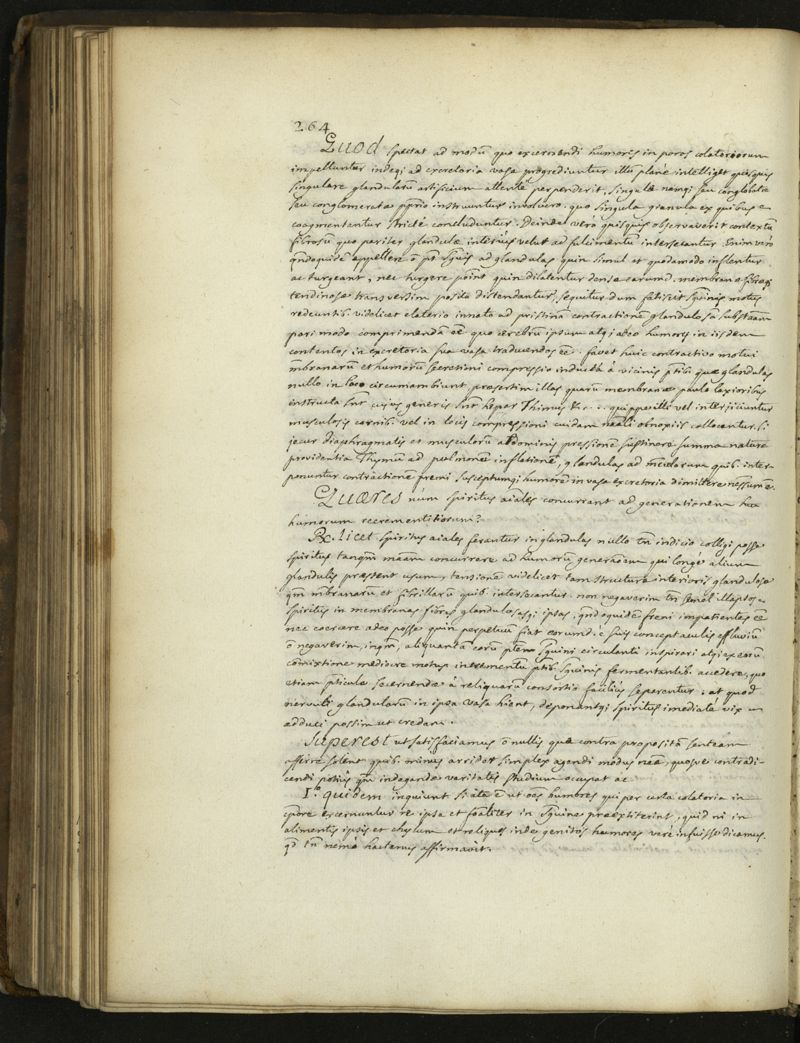 264
Quod spectat ad modū quo excernendi humores in poros colatoriorum
impelluntur indeqꝫ ad excretoria vasa progrediuntur illū planè intelliget quisquis
singulare glandularū artificium attentè perpenderit, singulæ nēmpè seu conglobatæ
seu conglomeratæ pprio instruuntur involucro, quo singula granula ex quibus
coagmentantur strictè concluduntur. Deinde verò quisquis observaverit contextū
fibrosū quo pariter glandulæ interiùs velut ad fulcimentū intersecantur. Enim vero
qndoquidē appellere ō pōt sguis ad glandulas quin simul et quodamodo inflentur
ac turgeant, nec turgere pōint quin dilatentur densæ earumd. membranæ fibræqꝫ
tendinosæ transversim positæ distendantur, sequitur dum fatiscit sguinis motus
redeuntib. videlicet elaterio innato ad pristinā contractionē glandulosā substāam
pari modo comprimendā eē quo cerebrū ipsum atqꝫ adeo humores in iisdem
contentos in excretoria sua vasa traducendos eē. favet huic contractivo motui
mbranarū et humorū secretioni compressio inducta à vicinis ptib. quæ glandulas
nullo in loco circumambiunt, præsertim illas quarū membranæ paulo laxioribus
instructæ snt cujus generis snt hepar Thimus &c. quippe illi vel intersiciuntur
musculosis carnib. vel in locis compressioni cuidam nāali obnoxiis collocantur. sic
jecur diaphragmatis et musculorū abdominis pressionē sustinere summa naturæ
providentia Thymū ad pulmonū inflationē, glandulas ad musculorum quib. inter-
ponuntur contractionē premi susceptumqꝫ humorē in vasa excretoria dimittere
Quæres nùm spiritus aīales concurrant ad generationem
humorum recrementitiorum?
R. licet spiritus aīales ferantur in glandulas nullo tn̄ indicio colligi posse
spiritus tanqm māam concurrere ad humorū generāoem qui longè alium
glandulis præstent usum, tensionē videlicet tam structuræ interioris glandulosæ
qm mbranarū et fibrillarū quib. intersecantur. non negaverim tn̄ semel illapsos
spiritus in membranas fibras glandulosasqꝫ ipsas, qndoquidē freni impatientes
nec coerceri adeo posse quin perpetuū fiat eorumd. è suis conceptaculis effluviū
ō negaverim, inqm, aliquantā eorū ptem sguini circulanti inspirari atqꝫ ex eorū
cōmixtione mediocre motus incrementū ptib. sguinis fermentantib. accedere, quo
etiam pticulæ secernendæ à reliquarū consortio faciliùs separentur: at quod
nervuli glandularū in ipsa vasa hient, deponantqꝫ spiritus imediatè vix
adduci possim ut credam.
Superest ut satisfaciamus ō nullis quæ contra propositā sentāam
afferre solent quib. minùs arridet simplex agendi modus næ, quosve contradi-
cendi potiùs qm indagandæ veritatis studium occupat ac
1.º quidem inquiunt si ita ē ut oēs humores qui per certa colatoria in
cpore excernuntur re ipsa et foaliter in sguine præextiterint, quid ni in
alimentis ipsis et chylum et reliquos inde genitos humores verè infuisse dicamus.
qd tn̄ nemo hactenus affirmavit.